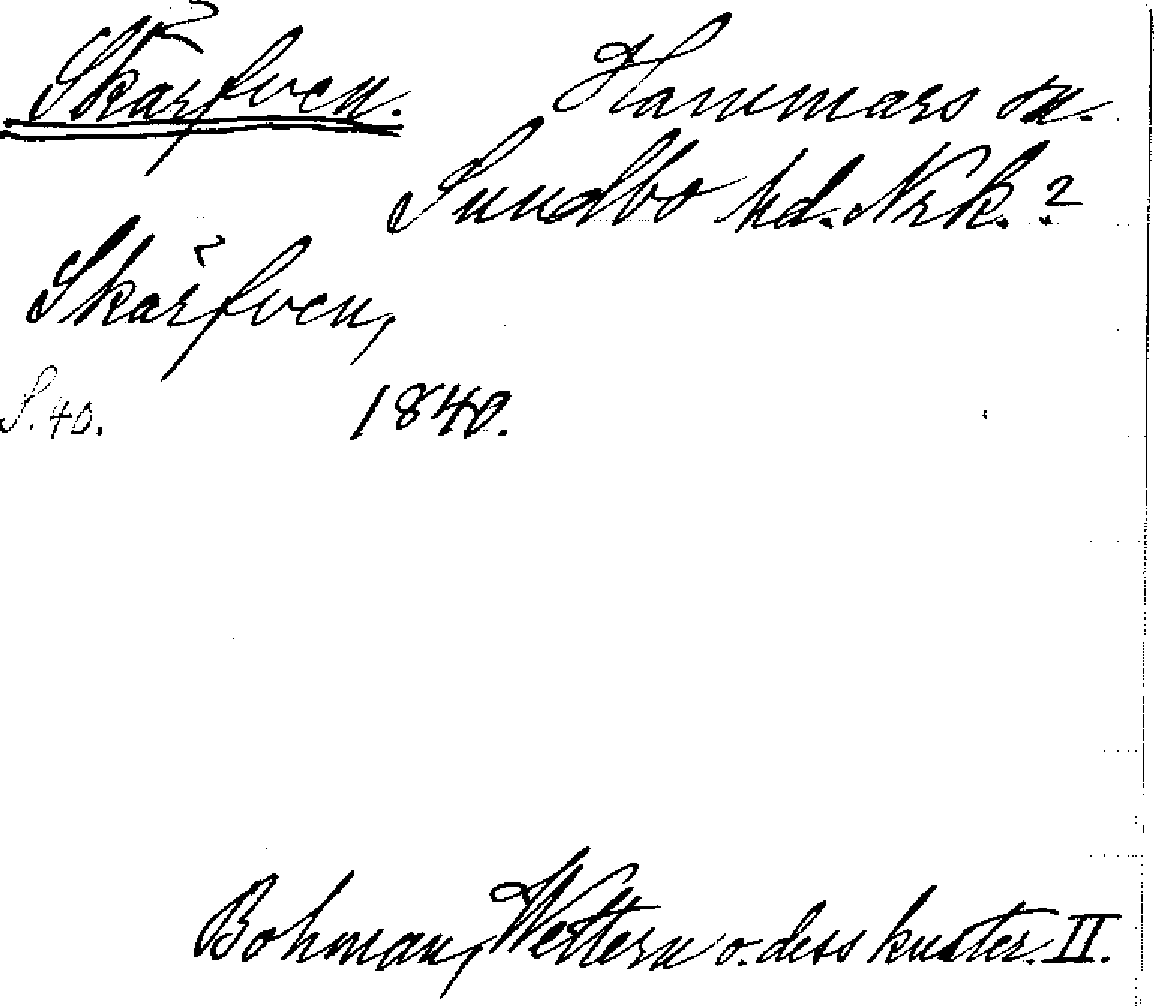 Skärfven. Hammars sn.
Sundbo hd. Nrk.?
Skärfven,
S. 40. 1840.
Bohman, Wettern o. dess kuster. II.